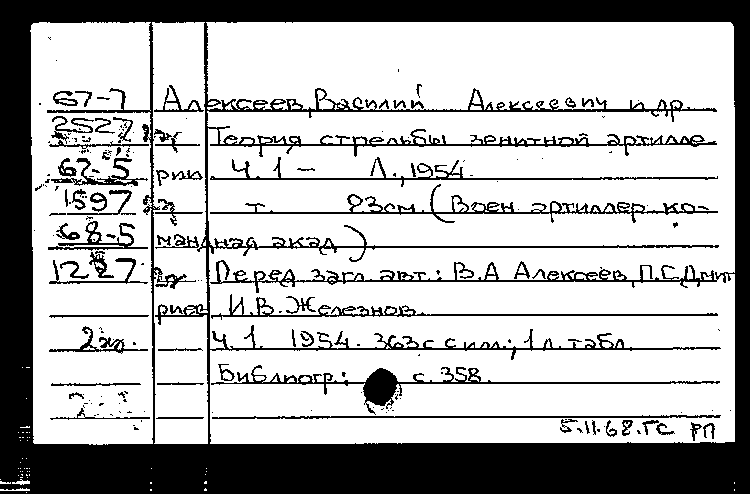 67-7 Алексеев, Василий Алексеевич и др.
2527 2эк Теория стрельбы зенитной артилле-
67-5 рии. Ч. 1 – Л., 1954.
1597 2эк т. 23см. (Воен артиллер ко-
68-5 мандная акад).
1227 2эк Перед загл. авт.: В.А Алексеев, П.С.Дмит
риев, И.В. Железнов.
2эк. Ч. 1. 1954. 363 с с илл.; 1 л. табл.
Библиогр.: с. 358.
5.11.68.ГС РП